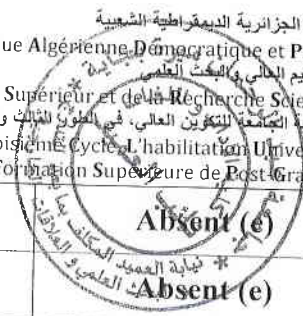 الجزائرية الديمقراطية الشعبية
ue Algérienne Démocratique et P
يم العالي والبحث العلمي
Supérieur et de la Recherche Scie
ة الجامعة للتكوين العالي، في الطور الثالث و
oisième Cycle L'habilitation Unive
Formation Supérieure de Post-Gra
Absent (e)
Absent (e)
نيابة العميد المكلف بما بعد
البحث العلمي و العلاقات